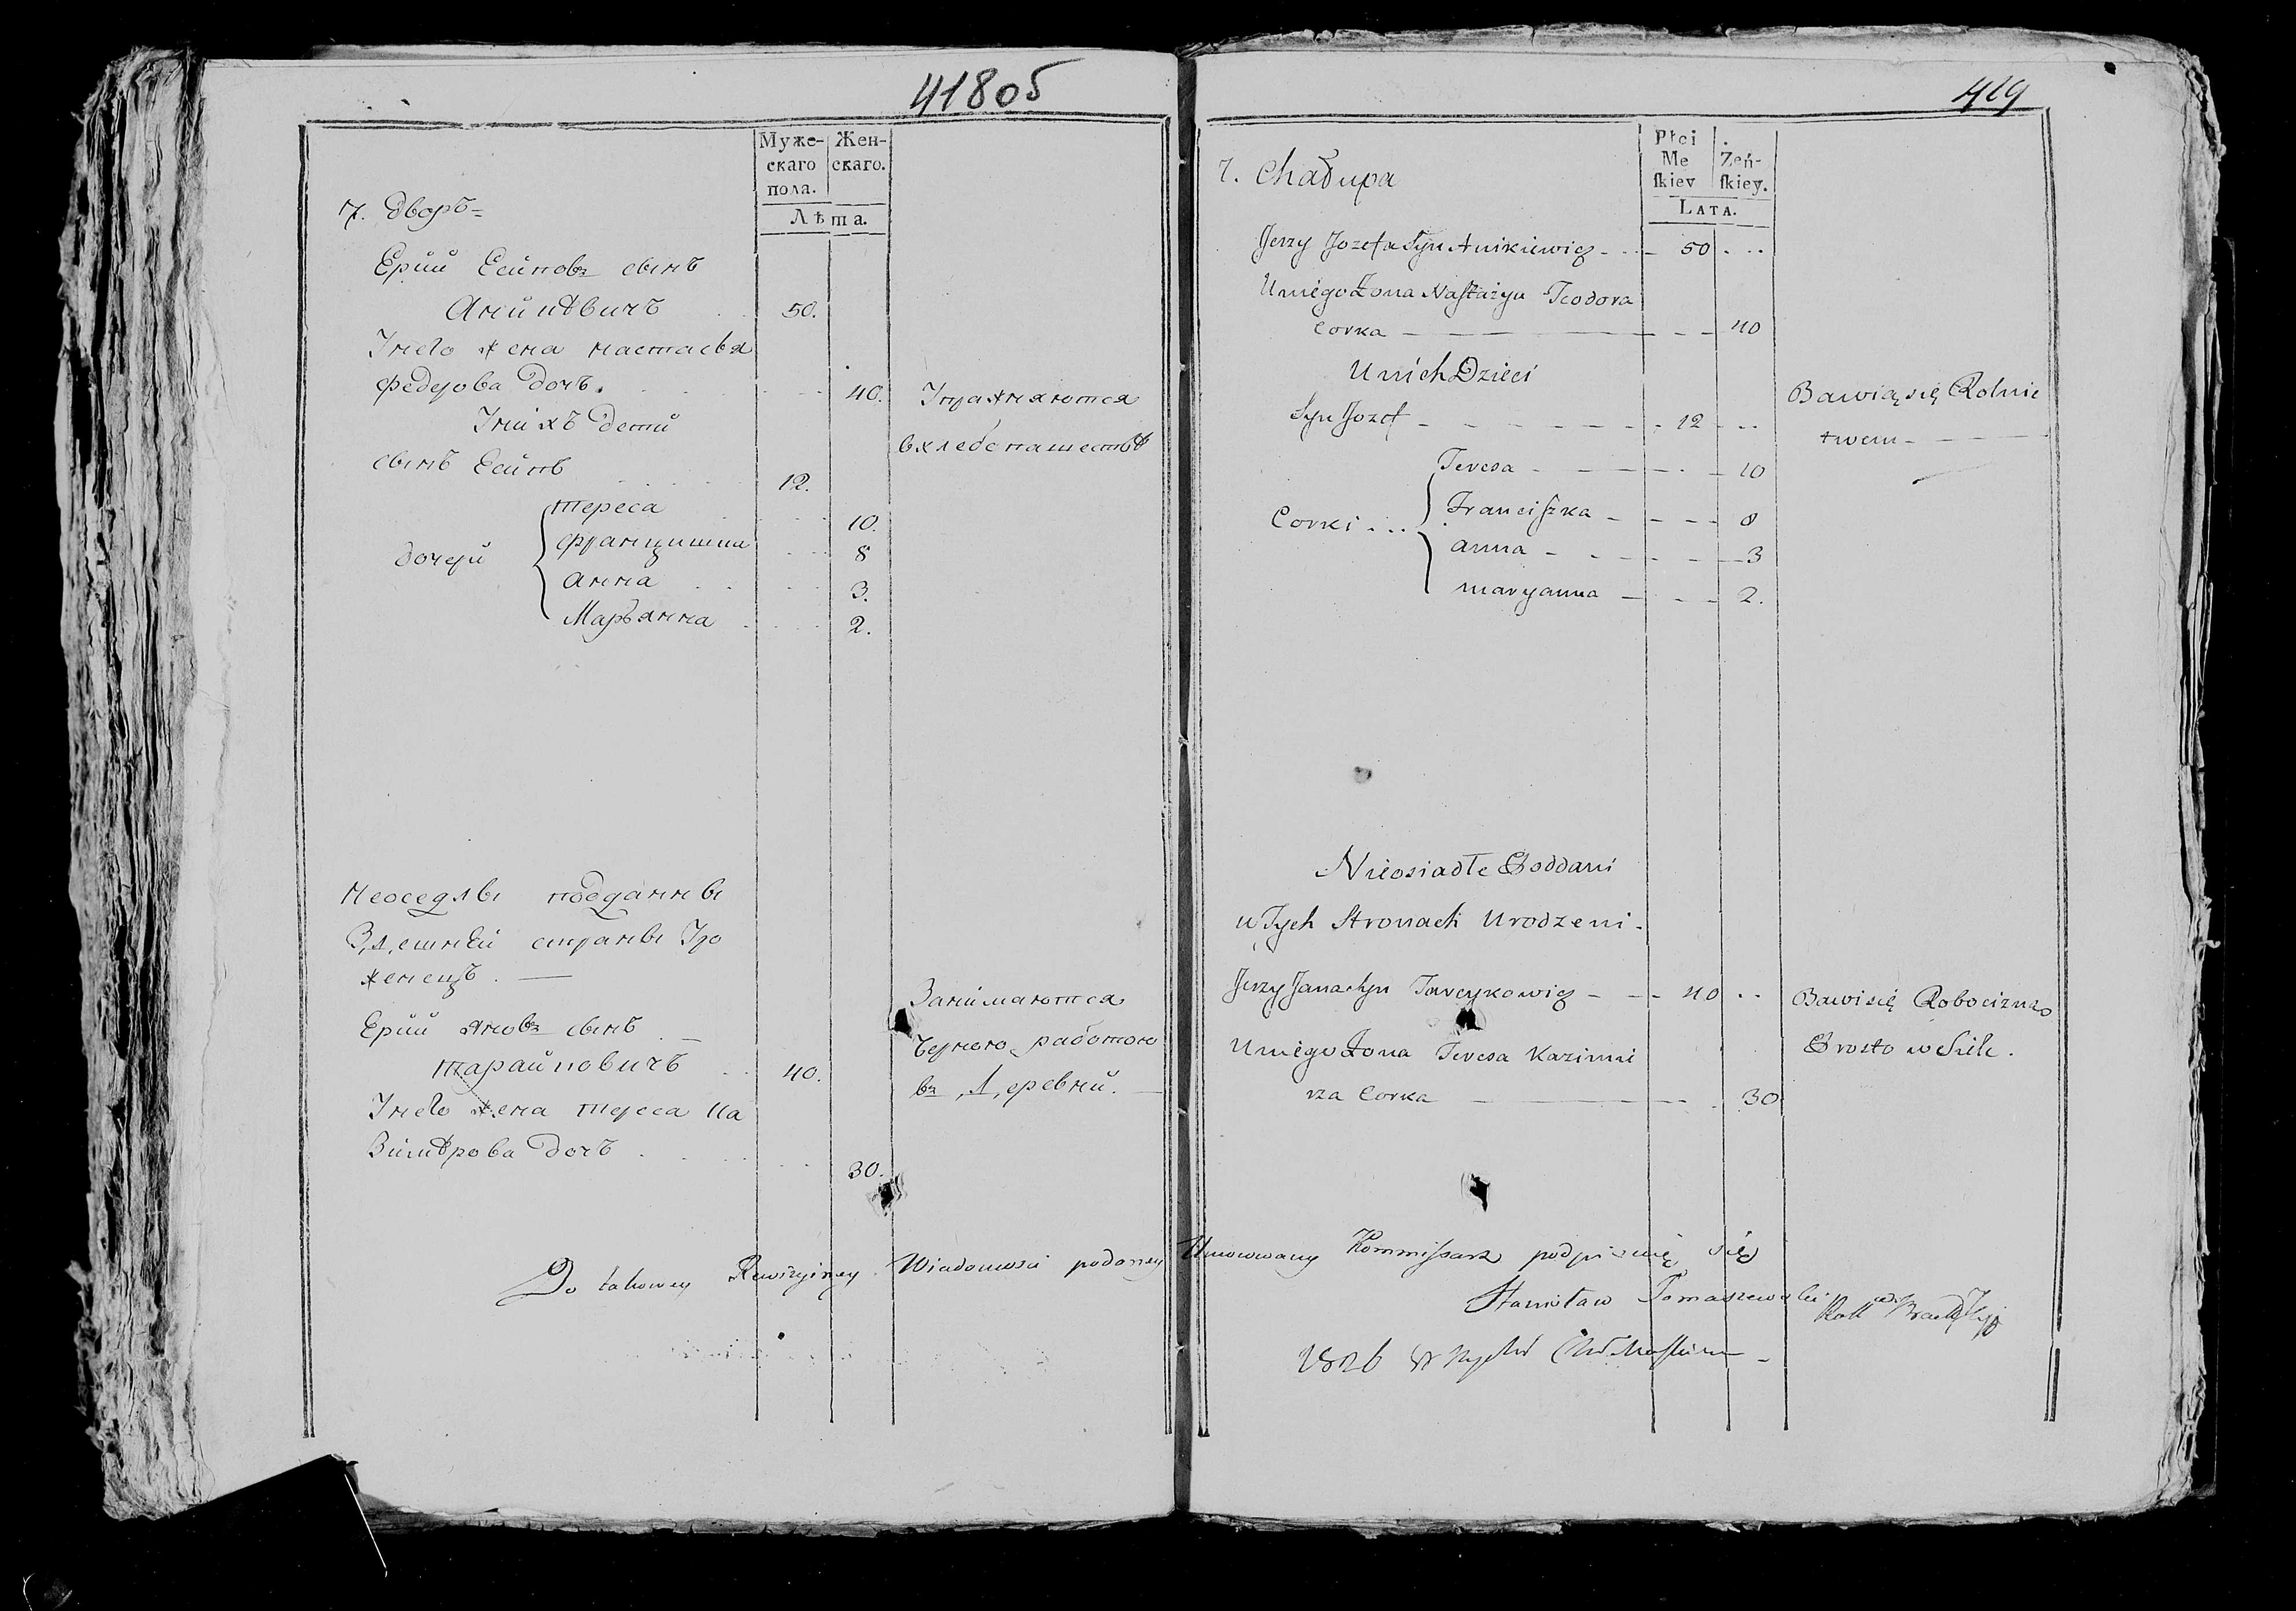 418об
Муже-
скаго
пола.
Жен-
скаго.
Лѣта.
7. дворъ =
Ерий Есиповъ сынъ
Аникѣвичъ 50.
Унего жена настасья
федорова дочъ. 40.
Унихъ дети
сынъ Есипъ 12.
дочери
тереса 10.
францишка 8
анна 3.
Марьянна 2.
Упражняются
вхлебопашествѣ
Неоседлы подданны
Здешней страны Уро
женецъ. —
Ерий яновъ сынъ
тарайковичъ 40.
Унего жена тереса Ка
Зимѣрова дочъ 30.
Занимаются
черною работою
въ деревни. —
419
Płci
Mę
skiey
Żeń-
skiey.
LATA.
7. Chałupa
Jerzy Jozefa Syn Anikiewicz - 50
Uniego Żona Nastazya Teodora
Corka - 40
Unich Dzieci
Syn Jozef - 12
Corki
Teresa - 10
Franciszka - 8
anna - 3
maryanna - 2.
Bawią się Rolnic
twem -
Nieosiadłe Poddani
w Tych Stronach Urodzeni -
Jerzy Jana Syn Tareykowicz - 40
Uniego Żona Teresa Kazimi
rza Corka - 30
Bawi się Robocizną
Prosto w Siele.
Do takowey Rewizyiney Wiadomosci podaney Umocowany Kommissarz podpisuię się
Stanisław Tomaszewski